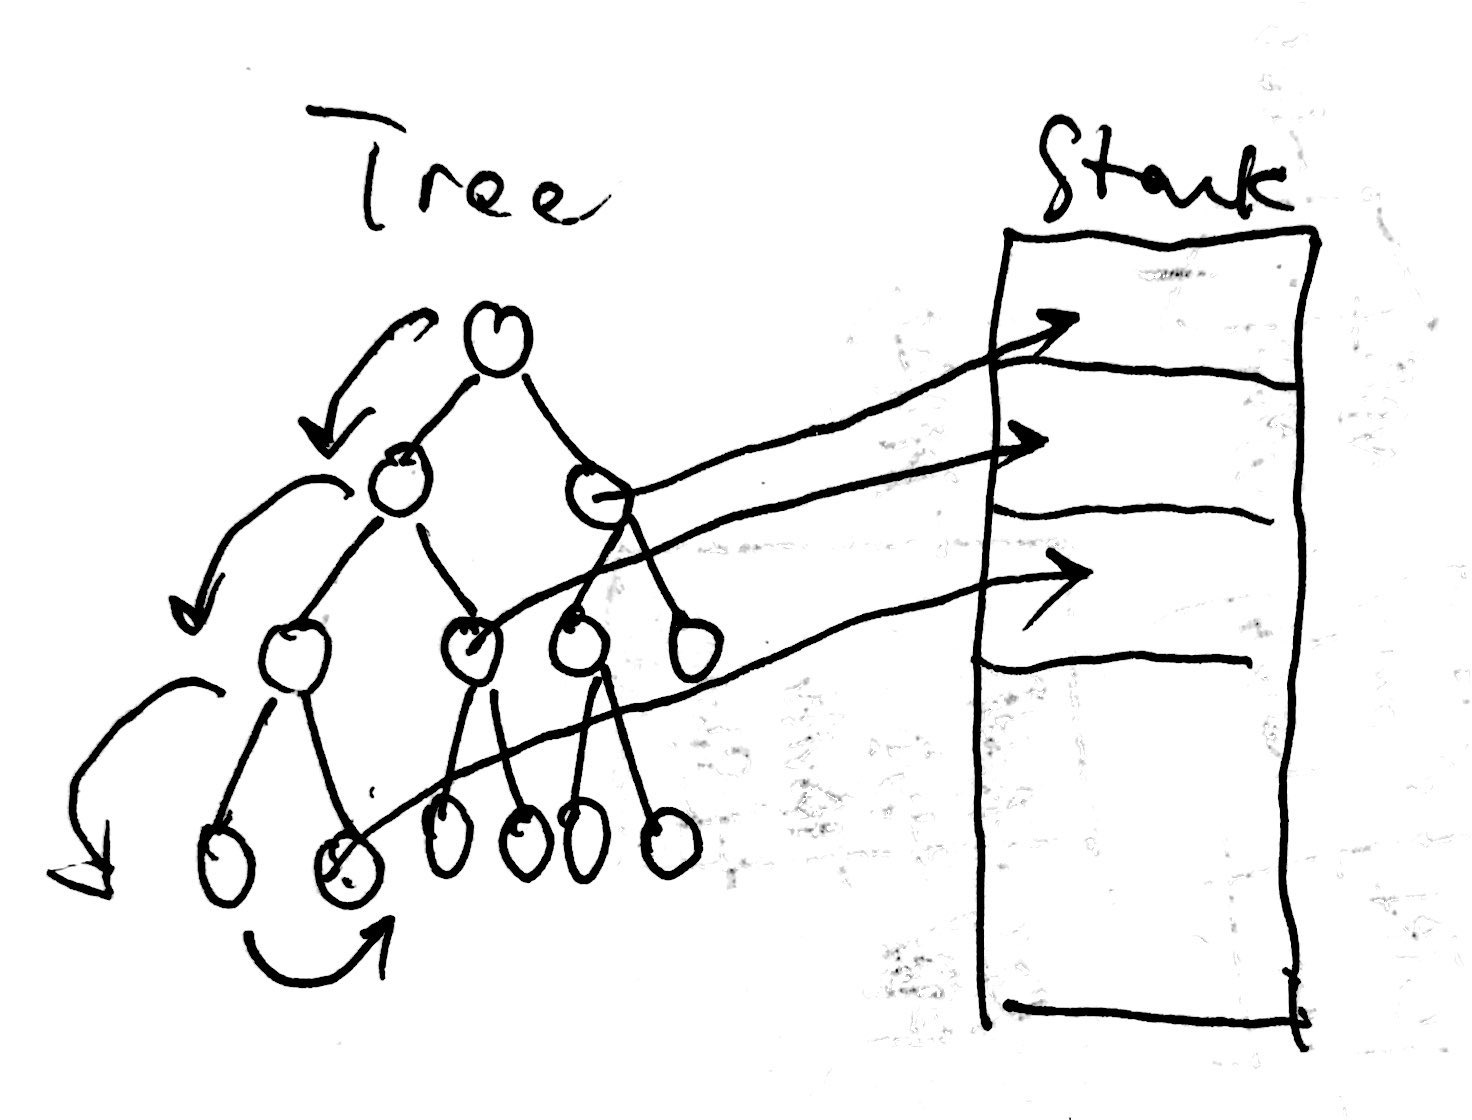 Tree
Stack